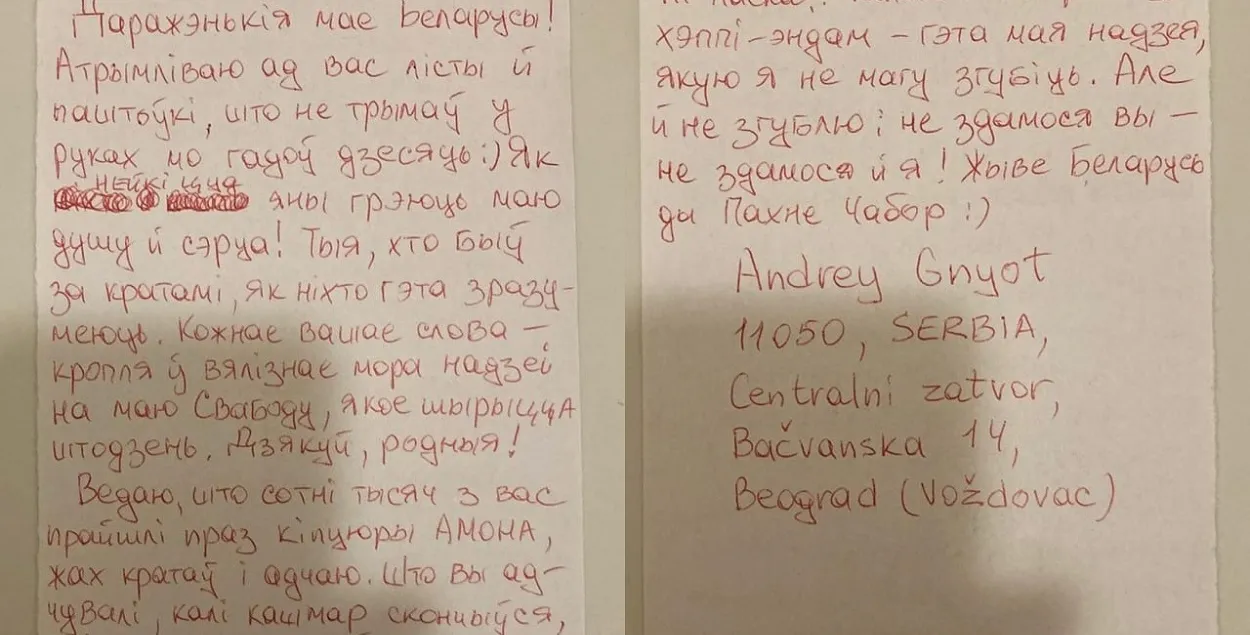 Даражэнькія мае Беларусы!
Атрымліваю ад вас лісты й
паштоўкі, што не трымаў у
руках мо гадоў дзесяць:) Як
нейкі цуд
яны грэюць маю
душу й сэрца! Тыя, хто быў
за кратамі, як ніхто гэта зразу-
меюць. Кожнае вашае слова —
кропля ў вялізнае мора надзеі
на маю Свабоду, якое шырыцца
штодзень. Дзякуй, родныя!
Ведаю, што сотні тысяч з вас
прайшлі праз кіпцюры АМОНА,
жах кратаў і адчаю. Што вы ад-
чувалі, калі кашмар скончыўся,
хэппі-эндам – гэта мая надзея,
якую я не магу згубіць. Але
й не згублю: не здамося вы —
не здамося й я! Жыве Беларусь
ды Пахне Чабор:)
Andrey Gnyot
11050, SERBIA,
Centralni zatvor,
Bačvanska 14,
Beograd (Voždovac)